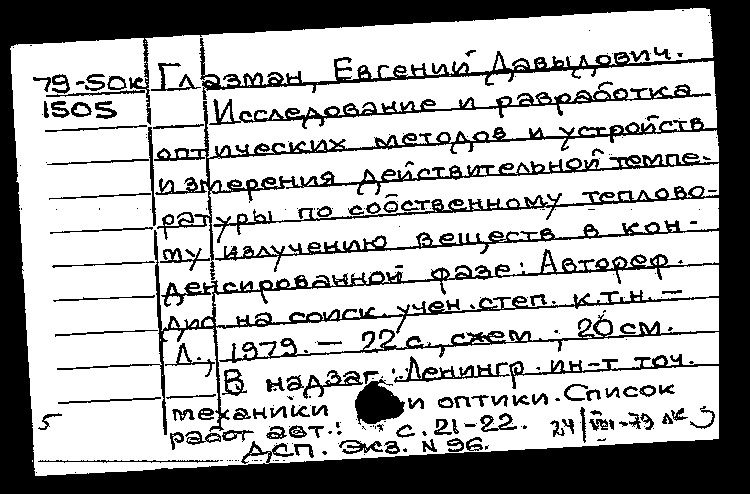 79-50к Глазман, Евгений Давыдович.
1505 Исследование и разработка
оптических методов и устройств
измерения действительной темпе-
ратуры по собственному теплово-
му излучению веществ в кон-
денсированной фазе: Автореф.
дис на соиск. учен. степ. к.т.н. –
Л., 1979. – 22 с., схем. ; 20 см.
В надзаг.: Ленингр. ин-т точ.
механики и оптики. Список
5 работ авт.: с. 21-22. 24/VIII-79
ДСП. Экз. N 96.